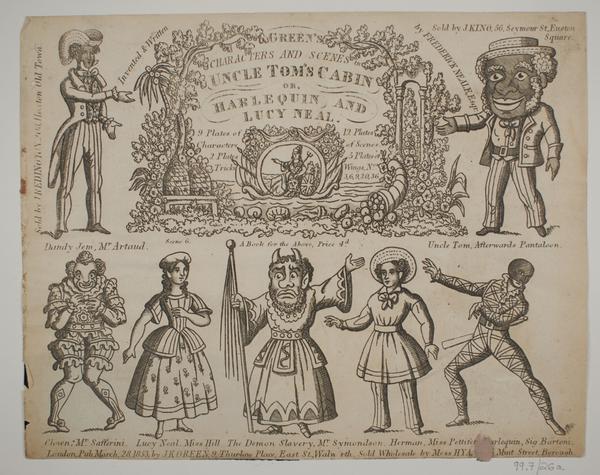 GREEN'S
CHARACTERS AND SCENES in
UNCLE TOM'S CABIN
OR,
HARLEQUIN AND
LUCY NEAL.
9 Plates of
Characters
2 Plates
Tricks
12 Plates
of Scenes
5 Plates of
Wings, Nos
Invented & Written
by FREDERICK NEALE, Esqr.
Sold by J. REDINGTON, 208, Hoxton Old Town.
Sold by J. KING, 56, Seymour St. Euston
Square.
Dandy Jem, Mr. Artaud.
Scene 6.
A Book for the Above, Price 4d
Uncle Tom, Afterwards Pantaloon.
Clown, Mr. Safferini. Lucy Neal, Miss Hill. The Demon Slavery, Mr. Symondson. Herman, Miss Pettifer. Harlequin, Sig. Bartoni.
London, Pub. March, 28, 1853, by J.K. GREEN, 9, Thurlow Place, East St., Walw rth. Sold Wholesale by Mess HYA Mint Street, Borough.
99.7/26a